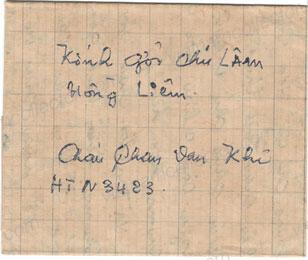 Kính gởi chú Lâm
Hồng Liêm.
Cháu Phan Van Khi
HTN 3423.